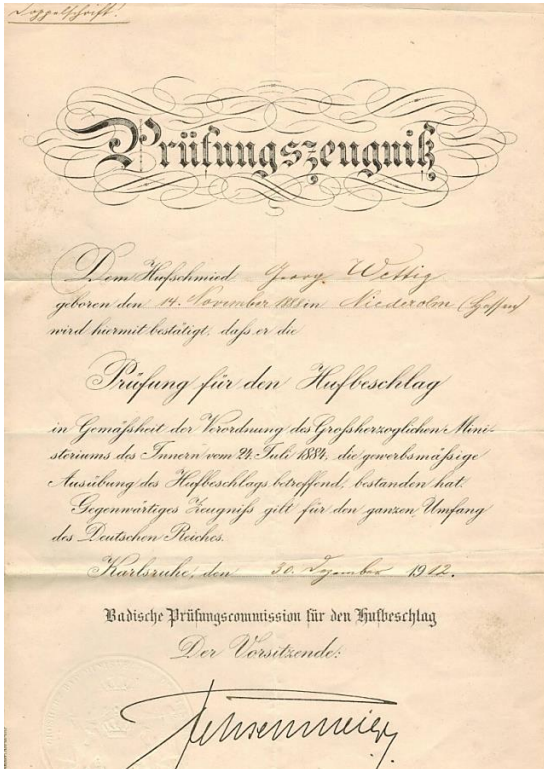 Doppelschrift!
Prüfungszeugniß
Dem Hufschmied Georg Wettig
geboren den 14. November 1888 in Niederolm (Hessen)
wird hiermit bestätigt, daß er die
Prüfung für den Hufbeschlag
in Gemäßheit der Verordnung des Großherzoglichen Mini-
steriums des Innern vom 24. Juli 1884, die gewerbsmäßige
Ausübung des Hufbeschlags betreffend, bestanden hat.
Gegenwärtiges Zeugniß gilt für den ganzen Umfang
des Deutschen Reiches.
Karlsruhe, den 30. Dezember 1912.
Badische Prüfungscommission für den Hufbeschlag
Der Vorsitzende: